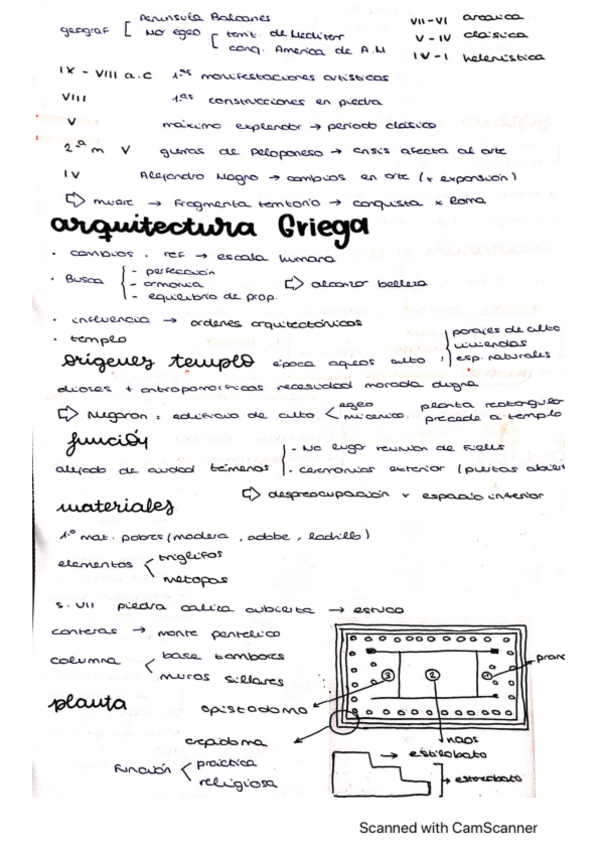 geograf [ Península Balcanes
No egeo [ territ. de Mediter
conq. America de A.M
VII-VI arcaica
V - IV clásica
IV - I helenística
IX - VIII a.C 1ªs manifestaciones artísticas
VIII 1ªs construcciones en piedra
V máximo explendor → periodo clásico
2ª m V guerras de Peloponeso → crisis afecta al arte
IV Alejandro Magno → cambios en arte (x expansión)
⇨ muere → fragmenta territorio → conquista x Roma
arquitectura Griega
· cambios . ref → escala humana
· Busca - perfección
- armonía
- equilibrio de prop.
⇨ alcanzar belleza
· influencia → ordenes arquitectónicos
· templo
orígenes templo época aqueos culto parajes de culto
viviendas
esp. naturales
dioses + antropomórficos necesidad morada digna
⇨ Megaron : edificio de culto < egeo
micénico,
planta rectangular
precede a templo
función
alejado de ciudad témenos - No lugar reunión de fieles
- ceremonias exterior (puertas abier
⇨ despreocupación x espacio interior
materiales
1º mat. pobres (madera, adobe, ladrillo)
elementos < triglifos
metopas
s. VII piedra caliza cubierta → estuco
canteras → monte pentelico
columna < base tambores
muros sillares
planta
opistodomo
3 2 1
pron
naos
crepidoma
función < práctica
religiosa
→ estilobato
→ estereobato
Scanned with CamScanner